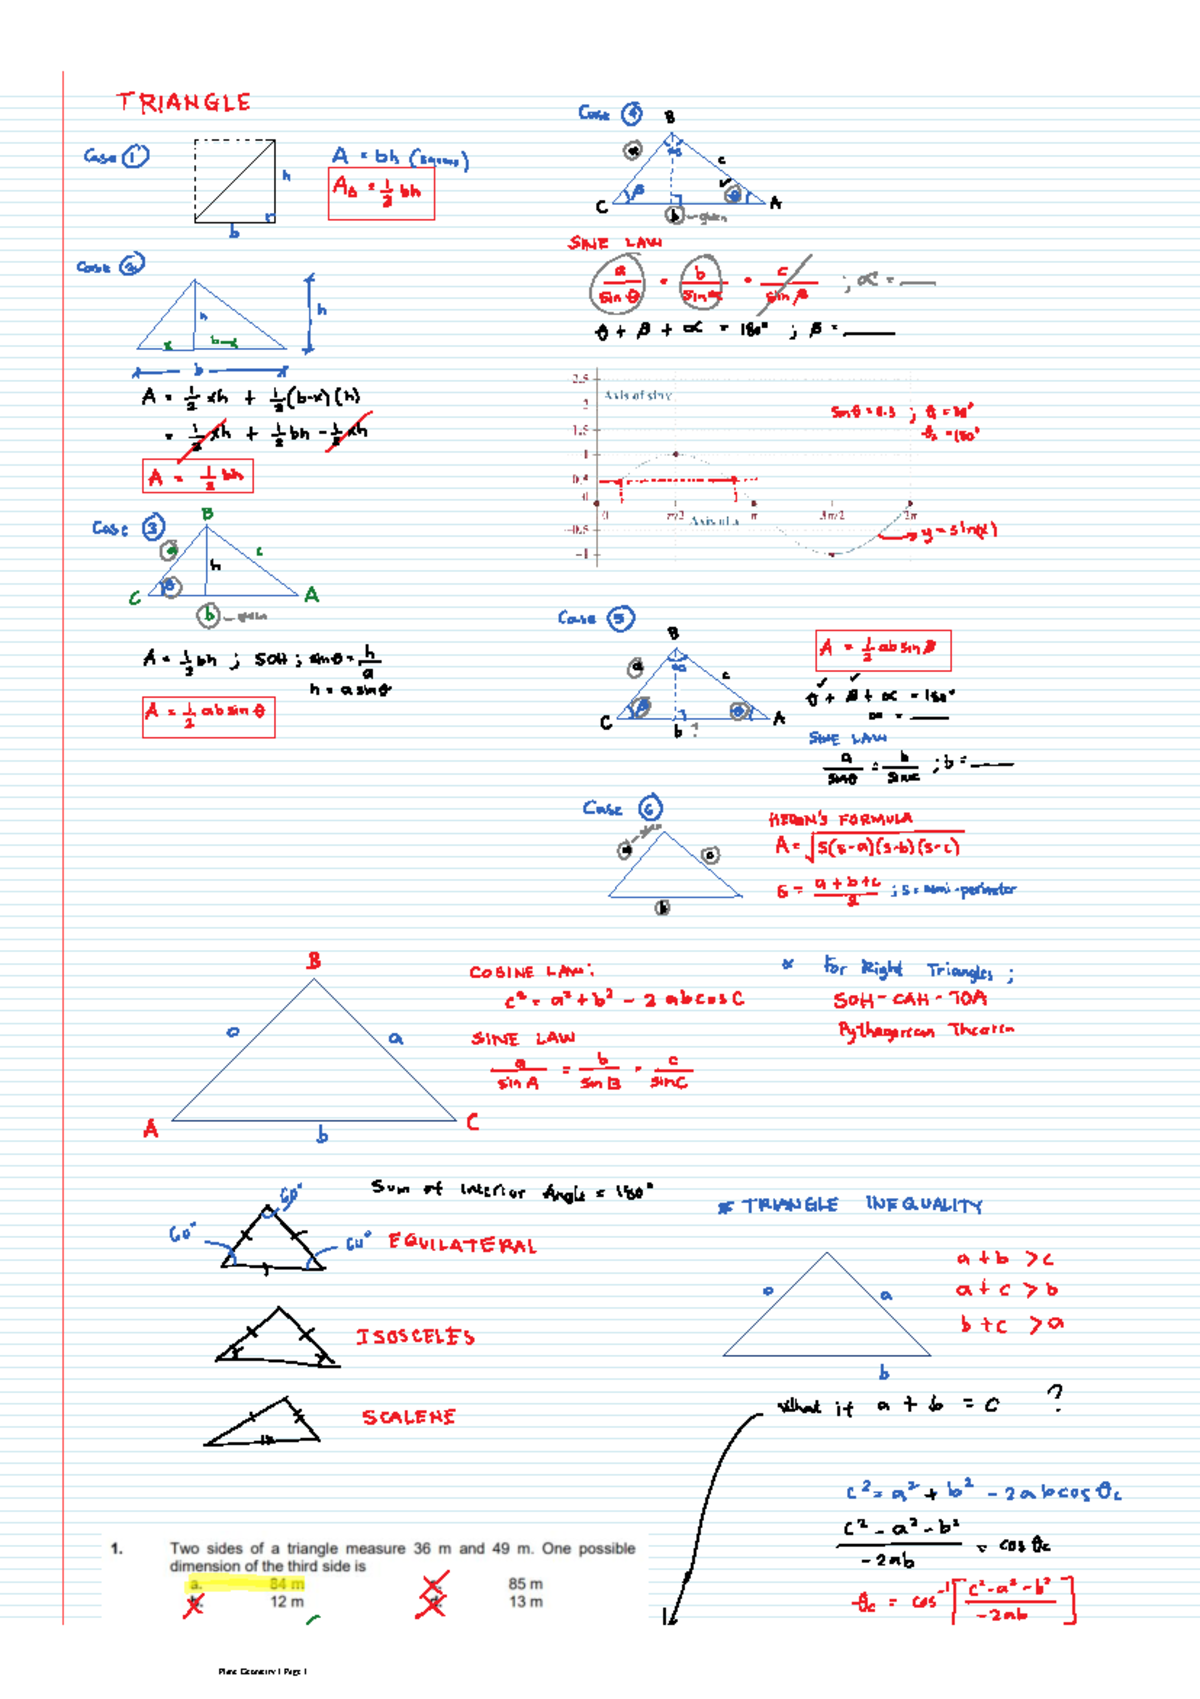 TRIANGLE
Case 1
h
b
A = bh (square)
A△ = 1/2 bh
Case 2
h
h
x
b-x
b
A = 1/2 xh + 1/2 (b-x)(h)
= 1/2 xh + 1/2 bh - 1/2 xh
A = 1/2 bh
Case 3
B
a
c
h
θ
C
A
b - given
A = 1/2 bh ; SOH ; sinθ = h/a
h = a sinθ
A = 1/2 ab sin θ
Case 4
B
a
c
β
θ
C
A
b - given
SINE LAW
a/sin θ = b/sin α = c/sin β ; α = ___
θ + β + α = 180° ; β = ___
2.5
Axis of sin y
2
1.5
1
0
-0.5
-1
0
π/2
Axis of x
π
3π/2
2π
y = sin(x)
Case 5
B
a
c
β
θ
C
A
b ?
A = 1/2 ab sin β
θ + β + α = 180°
α = ___
SINE LAW
a/sinθ = b/sinα ; b = ___
Case 6
a
c
b
HERON'S FORMULA
A = √S(s-a)(s-b)(s-c)
S = a+b+c/2 ; s = semi-perimeter
B
a
A
b
C
COSINE LAW:
c² = a² + b² - 2abcosC
SINE LAW
a/sin A = b/sin B = c/sin C
* For Right Triangles ;
SOH - CAH - TOA
Pythagorean Theorem
Sum of Interior Angle = 180°
60°
60°
60°
EQUILATERAL
ISOSCELES
SCALENE
* TRIANGLE INEQUALITY
a
b
a + b > c
a + c > b
b + c > a
What if a + b = c ?
c² = a² + b² - 2abcosθc
c² - a² - b²/-2ab = cos θc
θc = cos⁻¹[c² - a² - b²/-2ab]
1. Two sides of a triangle measure 36 m and 49 m. One possible
dimension of the third side is
a. 84 m
85 m
12 m
13 m
Plane Geometry 1 Page 1